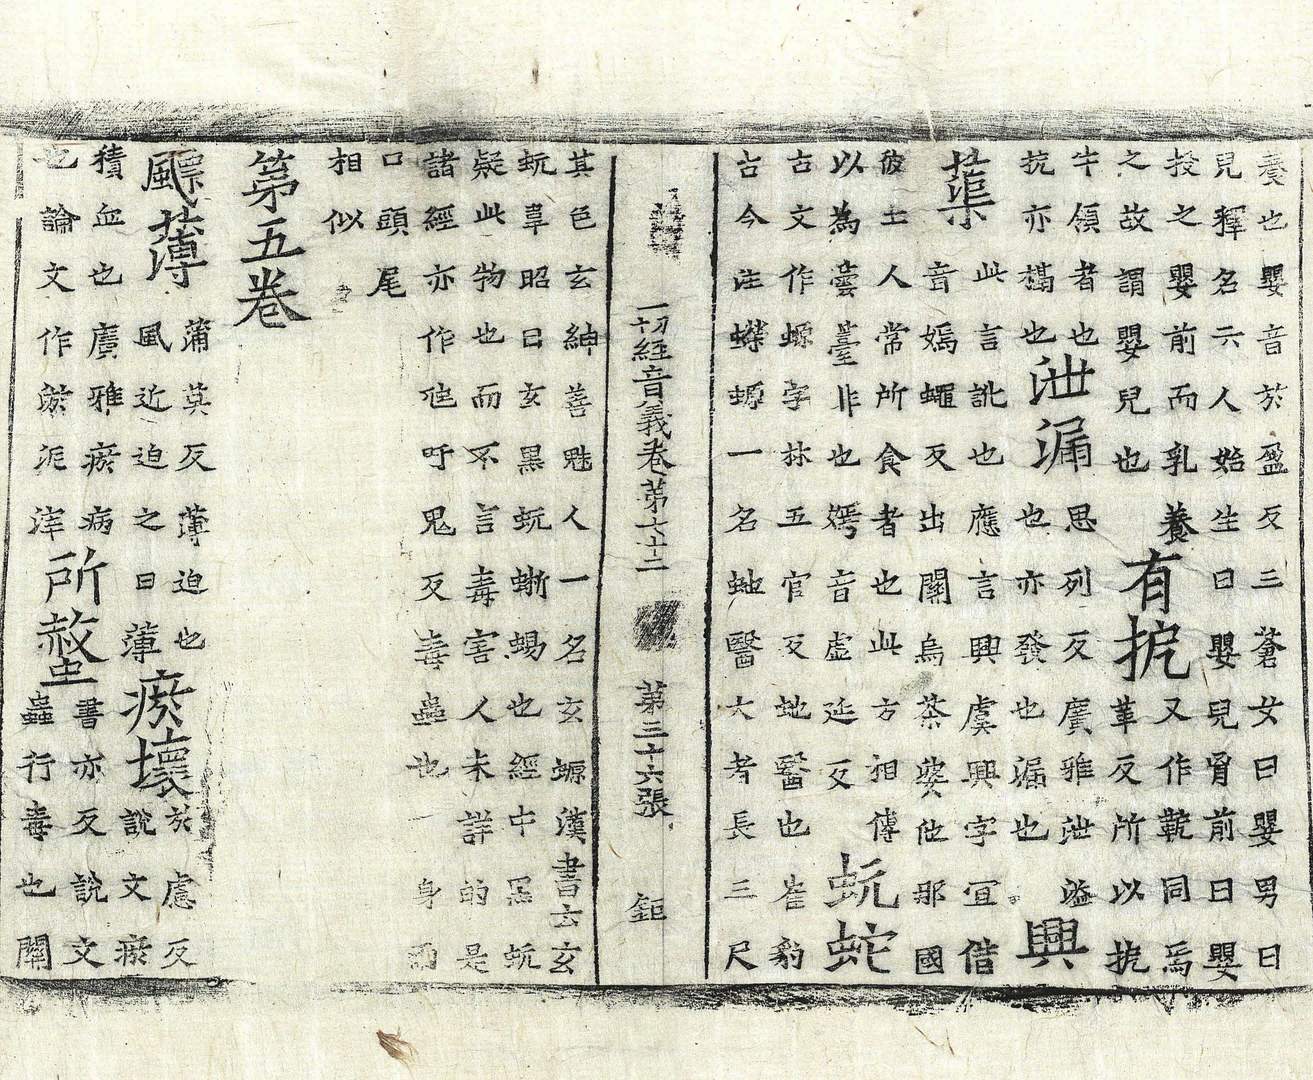 養也嬰音扵盈反三蒼女曰嬰男曰
兒釋名云人始生曰嬰兒胷前曰嬰
授之嬰前而乳養
之故謂嬰兒也
有扼
又作軶同焉
革反所以扼
牛領者也
抗亦槅也
泄漏
思列反廣雅泄溢
也亦發也漏也
興
蕖
此言訛也應言興虞興字冝偕
音嫣蠅反出關烏荼婆他那國
彼土人常所食者也此方相傳
以為蕓薹非也嫣音虛延反
蚖蛇
古文作螈字林五官反虵醫也崔豹
古今注蠑螈一名虵醫大者長三尺
一切經音義卷苐七十二 苐三十六張 鉅
其色玄紺善魅人一名玄螈漢書云玄
蚖韋昭曰玄黑蚖蜥蜴也經中黑蚖
疑此物也而不言毒害人未詳的是
諸經亦作虺呼鬼反毒蟲也 身而
口頭尾
相似
苐五卷
飄薄
蒲莫反薄迫也
風近迫之曰薄
瘀壞
扵慮反
說文瘀
積血也廣雅瘀病
也論文作淤泥滓
所螫
書亦反說文
蟲行毒也關